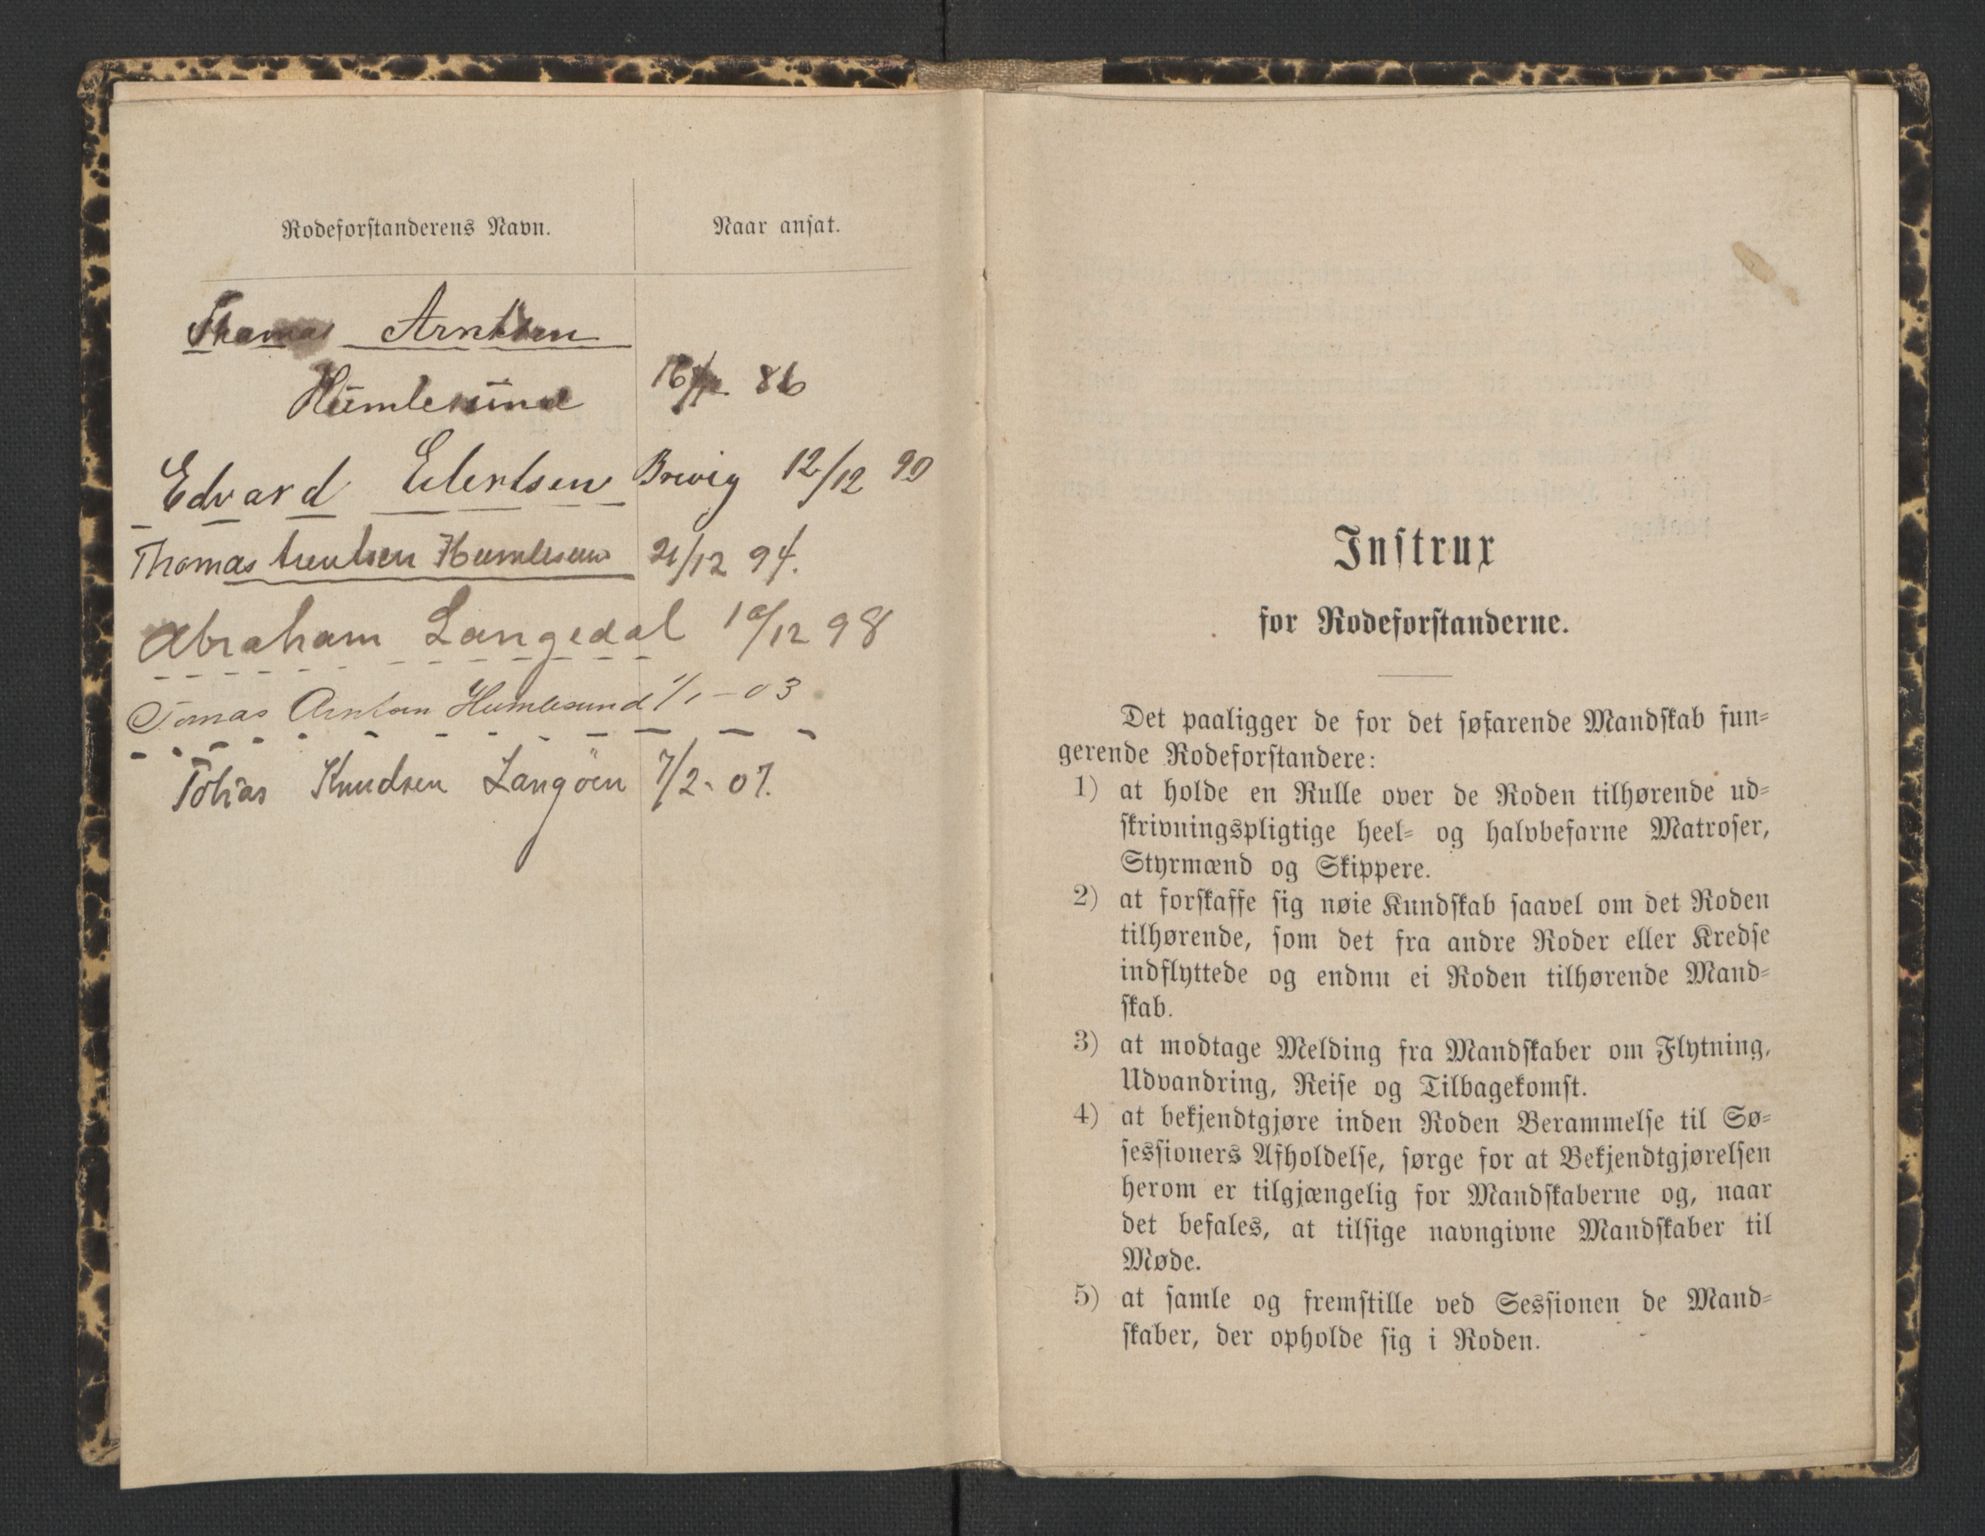 Rodeforstanderens Navn. Naar ansat.
Thomas Arntsen
Humlesund 86
Edvard Eilertsen Brevig 12/12 90
Thomas Arentsen Humlesund 21/12 94.
Abraham Langedal 10/12 98
Tomas Arntsen Humlesund 1/1-03
Tobias Knudsen Langöen 7/2-07.
Instrux
for Rodeforstanderne.
Det paaligger de for det søfarende Mandskab fun-
gerende Rodeforstandere:
1) at holde en Rulle over de Roden tilhørende ud-
skrivningspligtige heel- og halvbefarne Matroser,
Styrmænd og Skippere.
2) at forskaffe sig nøie Kundskab saavel om det Roden
tilhørende, som det fra andre Roder eller Kredse
indflyttede og endnu ei Roden tilhørende Mand-
skab.
3) at modtage Melding fra Mandskaber om Flytning,
Udvandring, Reise og Tilbagekomst.
4) at bekjendtgjøre inden Roden Berammelse til Sø-
sessioners Afholdelse, sørge for at Bekjendtgjørelsen
herom er tilgjængelig for Mandskaberne og, naar
det befales, at tilsige navngivne Mandskaber til
Møde.
5) at samle og fremstille ved Sessionen de Mand-
skaber, der opholde sig i Roden.